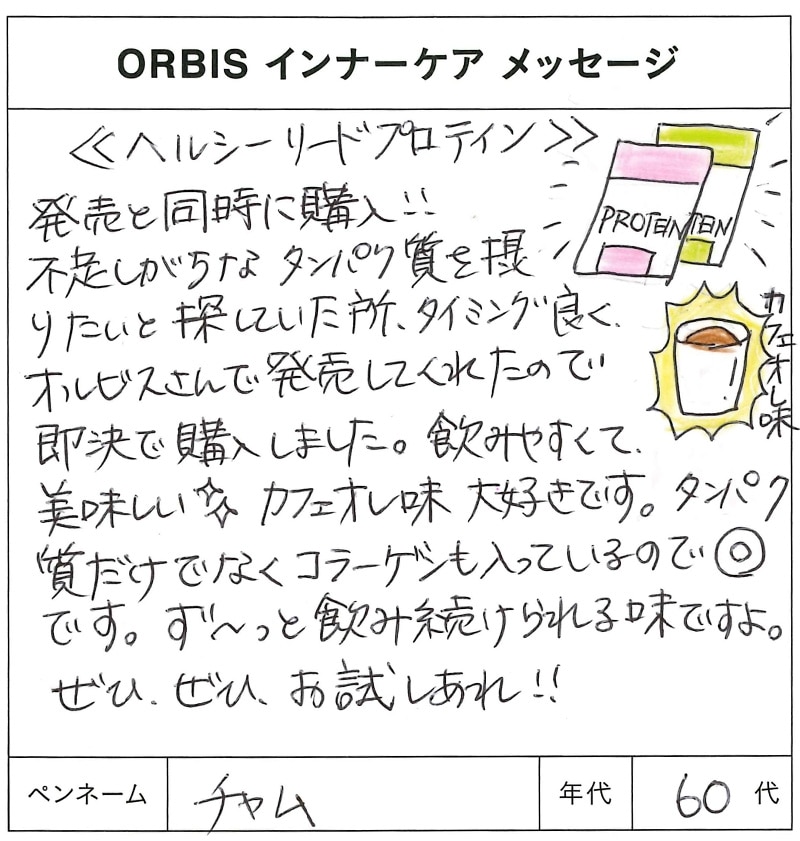 ORBIS インナーケア メッセージ
≪ヘルシーリードプロテイン≫
発売と同時に購入!!
不足しがちな タンパク質を摂
りたいと探していた所、タイミング良く、
オルビスさんで発売してくれたので
即決で購入しました。飲みやすくて、
美味しい カフェオレ味 大好きです。タンパク
質だけでなくコラーゲンも入っているので◎
です。ず〜っと飲み続けられる味ですよ。
ぜひ、ぜひ、お試しあれ!!
PROTEIN
TEIN
カフェオレ味
ペンネーム チャム 年代 60 代